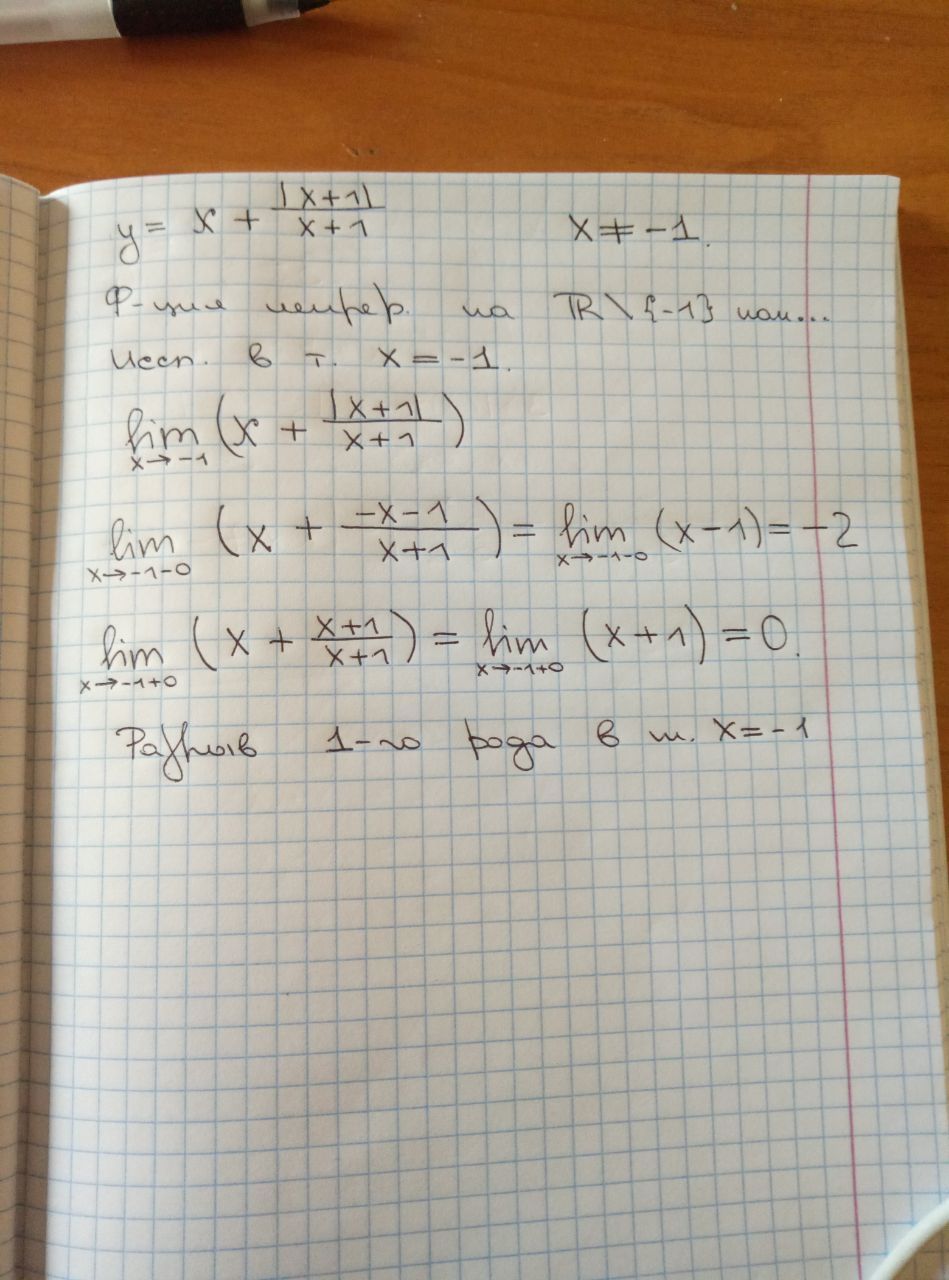 y = x + |x+1| / x+1 x ≠ -1.
Ф-ция непрер. на ℝ\{-1} как...
Иссл. в т. x = -1.
lim x→-1 (x + |x+1| / x+1)
lim x→-1-0 (x + -x-1 / x+1) = lim x→-1-0 (x-1) = -2
lim x→-1+0 (x + x+1 / x+1) = lim x→-1+0 (x+1) = 0.
Разрыв 1-го рода в т. x = -1